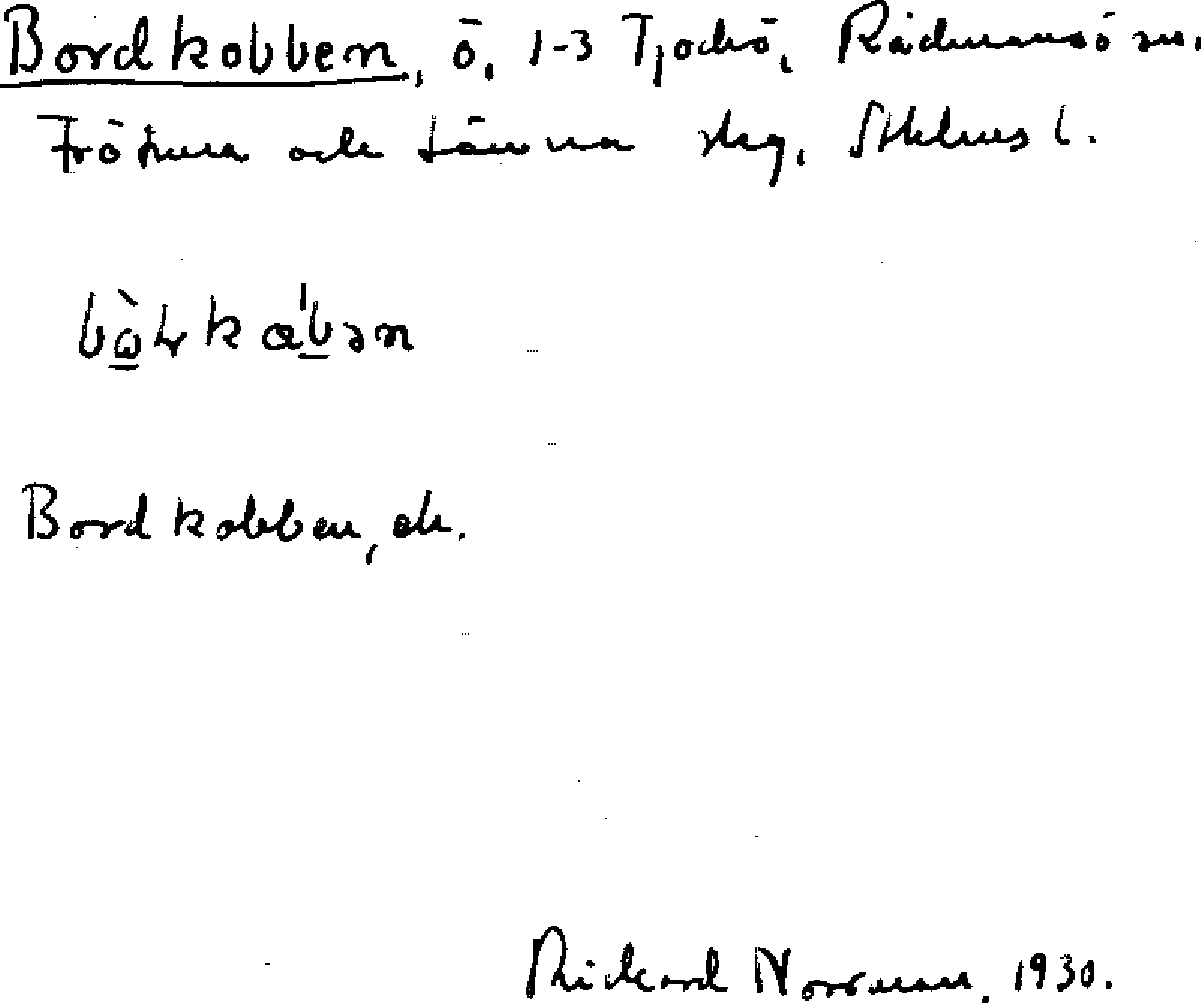 Bordkobben, ö, 1-3 Tjockö, Rådmansö sn.
Frötuna och Länna skg, Sthlms l.
Bordkobben, ek.
Rickard Norrman, 1930.